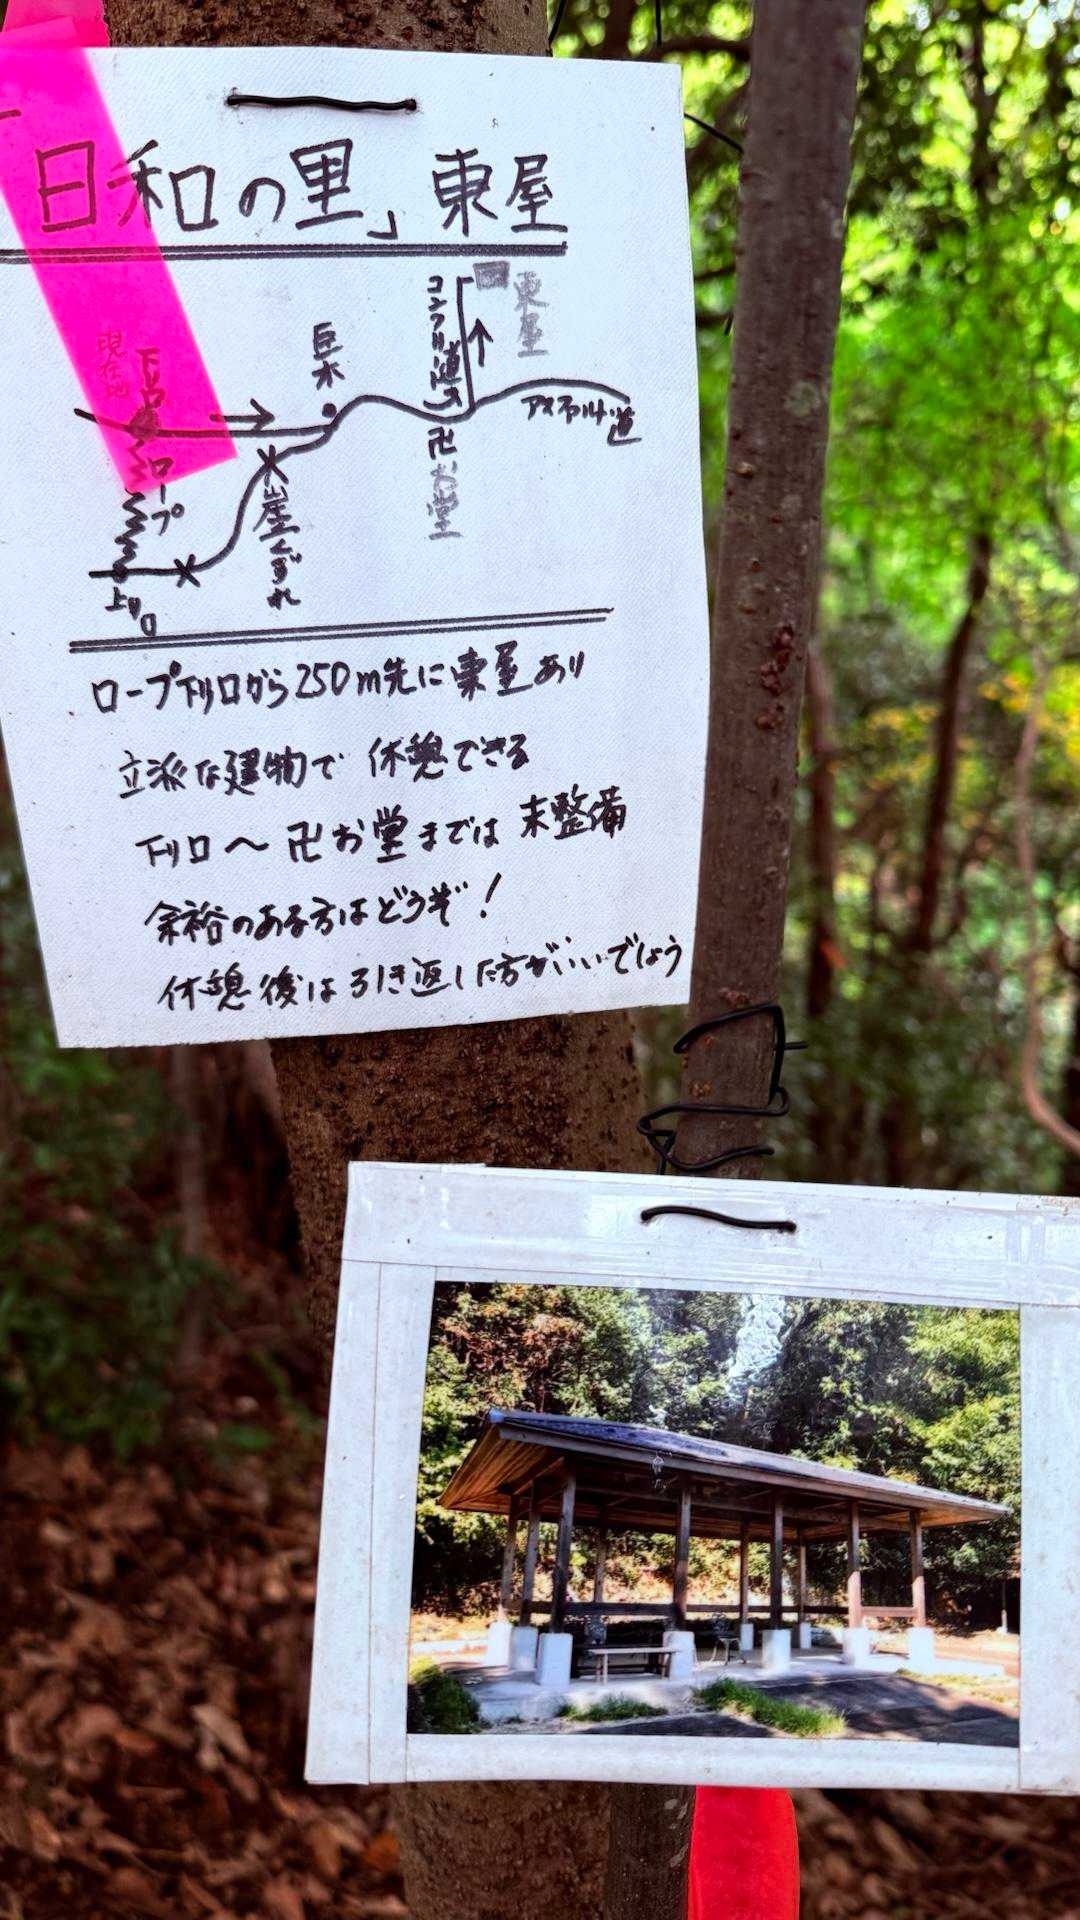 「日和の里」東屋
東屋
コンクリ道
巨木
現在地
下り口
アスファルト道
卍お堂
ロープ
崖くずれ
上り口
ロープ下り口から250m先に東屋あり
立派な建物で 休憩できる
下り口〜卍お堂までは 未整備
余裕のある方はどうぞ!
休憩後は引き返した方がいいでしょう